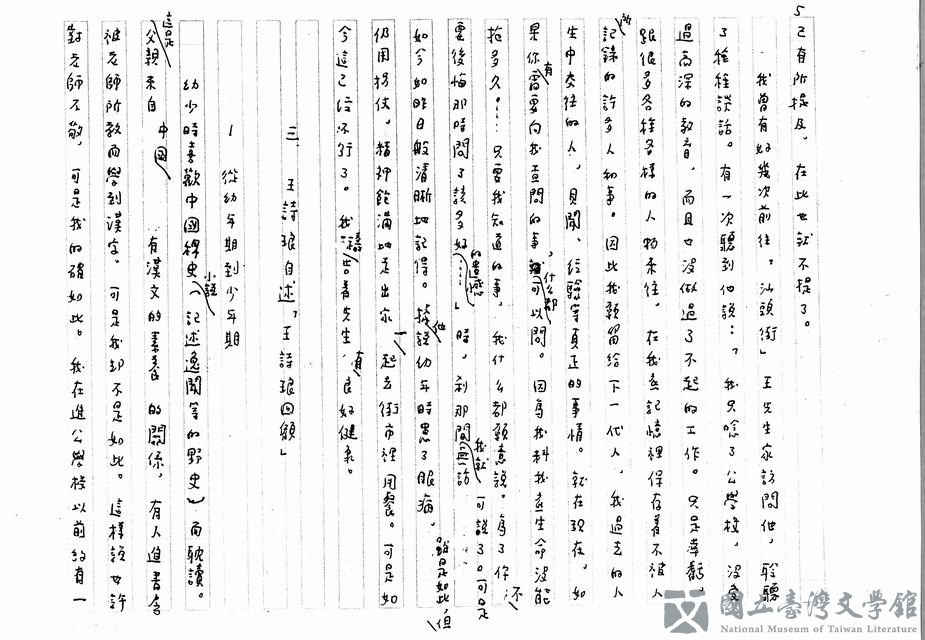 5
己有所提及，在此也就不提了。
我曾有好幾次前往「汕頭街」王先生家訪問他，聆聽
了種種談話。有一次聽到他說：「我只唸了公學校，沒受
過高深的教育，而且也沒做過了不起的工作。只是幸虧
跟很多各種各樣的人物來往，在我這記憶裡保存著不被
所記錄的許多人和事。因此我願留給下一代人，我過去的人
生中交往的人，見聞、經驗等真正的事情。就在現在，如
果你有需要向我查問的事，什麼都可以問。因為我料我這生命沒能
拖多久……只要我知道的事，我什么都願意說。為了你不
要後悔那時問了該多好……」的遺憾時，剎那間無話我就可說了。可是
如今如昨日般清晰地記得。據說他幼年時患了眼病，雖是如此，但
仍用拐杖，精神飽滿地走出家一起去街市裡用餐。可是如
今這已經不行了。我禱告着先生有良好健康。
三、王詩琅自述「王詩琅回顧」
1 從幼年期到少年期
幼少時喜歡中國稗史小說（記述逸聞等的野史）而耽讀。
這是父親來自中國，有漢文的素養的關係，有人進書舍
被老師所教而學到漢字。可是我却不是如此。這樣說也許
對老師不敬，可是我的確如此。我在進公學校以前約有一
國立臺灣文學館
National Museum of Taiwan Literature